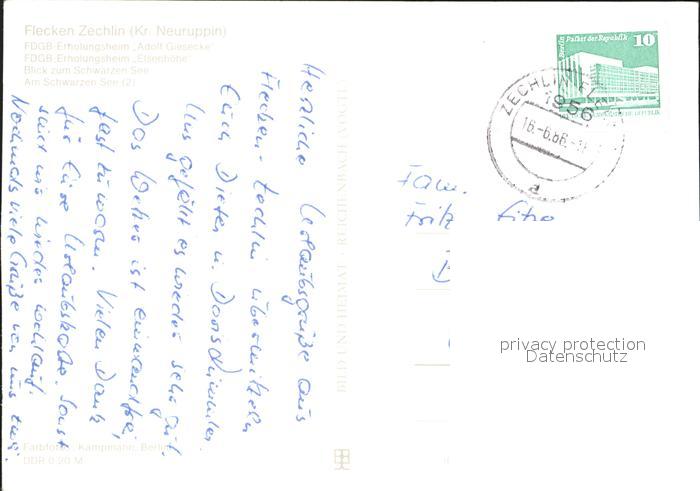 Flecken Zechlin (Kr. Neuruppin)
FDGB-Erholungsheim „Adolf Giesecke"
FDGB-Erholungsheim „Elsenhöhe"
Blick zum Schwarzen See
Am Schwarzen See (2)
Herzliche Urlaubsgrüße aus
Flecken-Zechlin übermitteln
Euch Dieter u. Doris
Uns gefällt es wieder sehr gut.
Das Wetter ist einwandfrei,
fast zu warm. Vielen Dank
für Eure Urlaubskarte. Sonst
sind wir wieder wohlauf.
Nochmals viele Grüße von uns
Farbfotos: Kampmann, Berlin
DDR 0,20 M
BILD UND HEIMAT · REICHENBACH (VOGTL)
Berlin Palast der Republik 10
ZECHLIN, FLECKEN
1956
16.-6.86.
a
Fam.
Fritz
privacy protection
Datenschutz